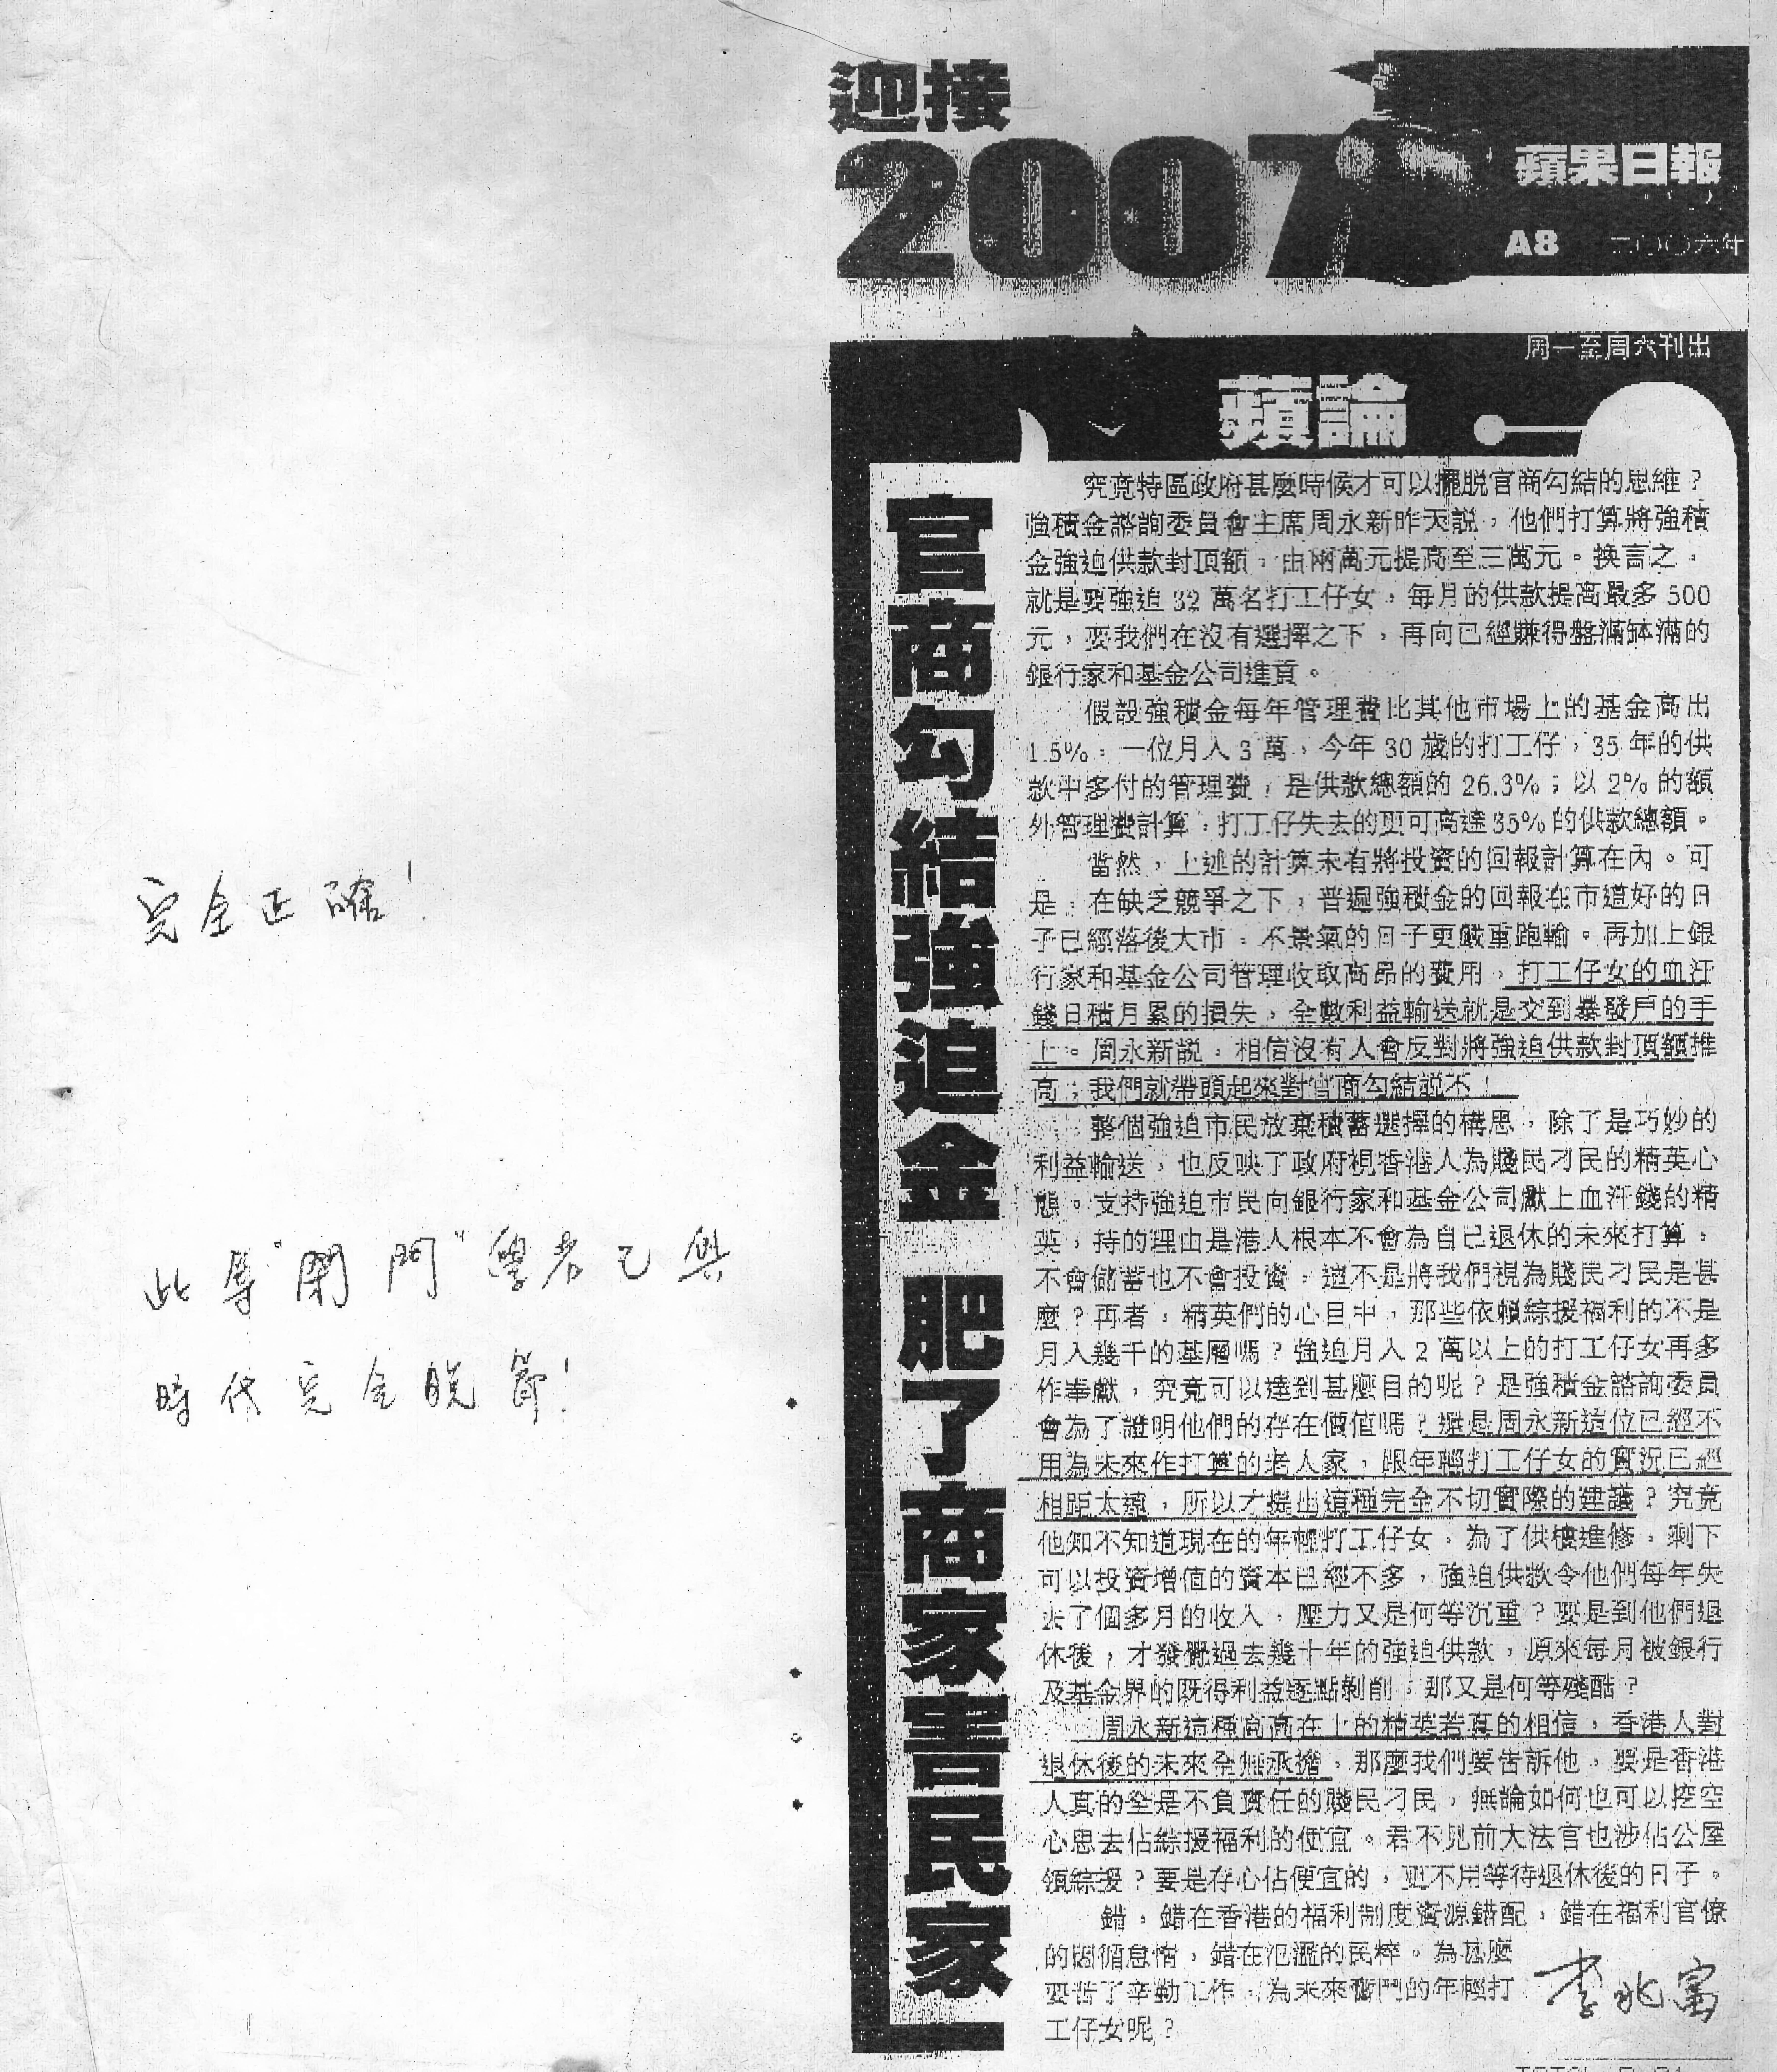 迎接
2007
蘋果日報
A8 二〇〇六年
周一至周六刊出
蘋論
官商勾結強迫金 肥了商家害民家
究竟特區政府甚麼時候才可以擺脱官商勾結的思維？
強積金諮詢委員會主席周永新昨天説，他們打算將強積
金強迫供款封頂額，由兩萬元提高至三萬元。換言之，
就是要強迫 32 萬名打工仔女，每月的供款提高最多 500
元，要我們在沒有選擇之下，再向已經賺得盤滿缽滿的
銀行家和基金公司進貢。
假設強積金每年管理費比其他市場上的基金高出
1.5%。一位月入 3 萬，今年 30 歲的打工仔，35 年的供
款中多付的管理費，是供款總額的 26.3%；以 2% 的額
外管理費計算，打工仔失去的更可高達 35% 的供款總額。
當然，上述的計算未有將投資的回報計算在內。可
是，在缺乏競爭之下，普遍強積金的回報在市道好的日
子已經落後大市，不景氣的日子更嚴重跑輸。再加上銀
行家和基金公司管理收取高昂的費用，打工仔女的血汗
錢日積月累的損失，全數利益輸送就是交到暴發戶的手
上。周永新説，相信沒有人會反對將強迫供款封頂額推
高；我們就帶頭起來對官商勾結説不！
整個強迫市民放棄積蓄選擇的構思，除了是巧妙的
利益輸送，也反映了政府視香港人為賤民刁民的精英心
態。支持強迫市民向銀行家和基金公司獻上血汗錢的精
英，持的理由是港人根本不會為自己退休的未來打算，
不會儲蓄也不會投資，這不是將我們視為賤民刁民是甚
麼？再者，精英們的心目中，那些依賴綜援福利的不是
月入幾千的基層嗎？強迫月入 2 萬以上的打工仔女再多
作奉獻，究竟可以達到甚麼目的呢？是強積金諮詢委員
會為了證明他們的存在價值嗎？還是周永新這位已經不
用為未來作打算的老人家，跟年輕打工仔女的實況已經
相距太遠，所以才提出這種完全不切實際的建議？究竟
他知不知道現在的年輕打工仔女，為了供樓進修，剩下
可以投資增值的資本已經不多，強迫供款令他們每年失
去了個多月的收入，壓力又是何等沉重？要是到他們退
休後，才發覺過去幾十年的強迫供款，原來每月被銀行
及基金界的既得利益逐點剝削，那又是何等殘酷？
周永新這種高高在上的精英若真的相信，香港人對
退休後的未來全無承擔，那麼我們要告訴他，要是香港
人真的全是不負責任的賤民刁民，無論如何也可以挖空
心思去佔綜援福利的便宜。君不見前大法官也涉佔公屋
領綜援？要是存心佔便宜的，更不用等待退休後的日子。
錯，錯在香港的福利制度資源錯配，錯在福利官僚
的因循怠惰，錯在氾濫的民粹。為甚麼
要苦了辛勤工作，為未來奮鬥的年輕打
工仔女呢？
李兆富
完全正確！
此等"閉門"學者已與
時代完全脫節！